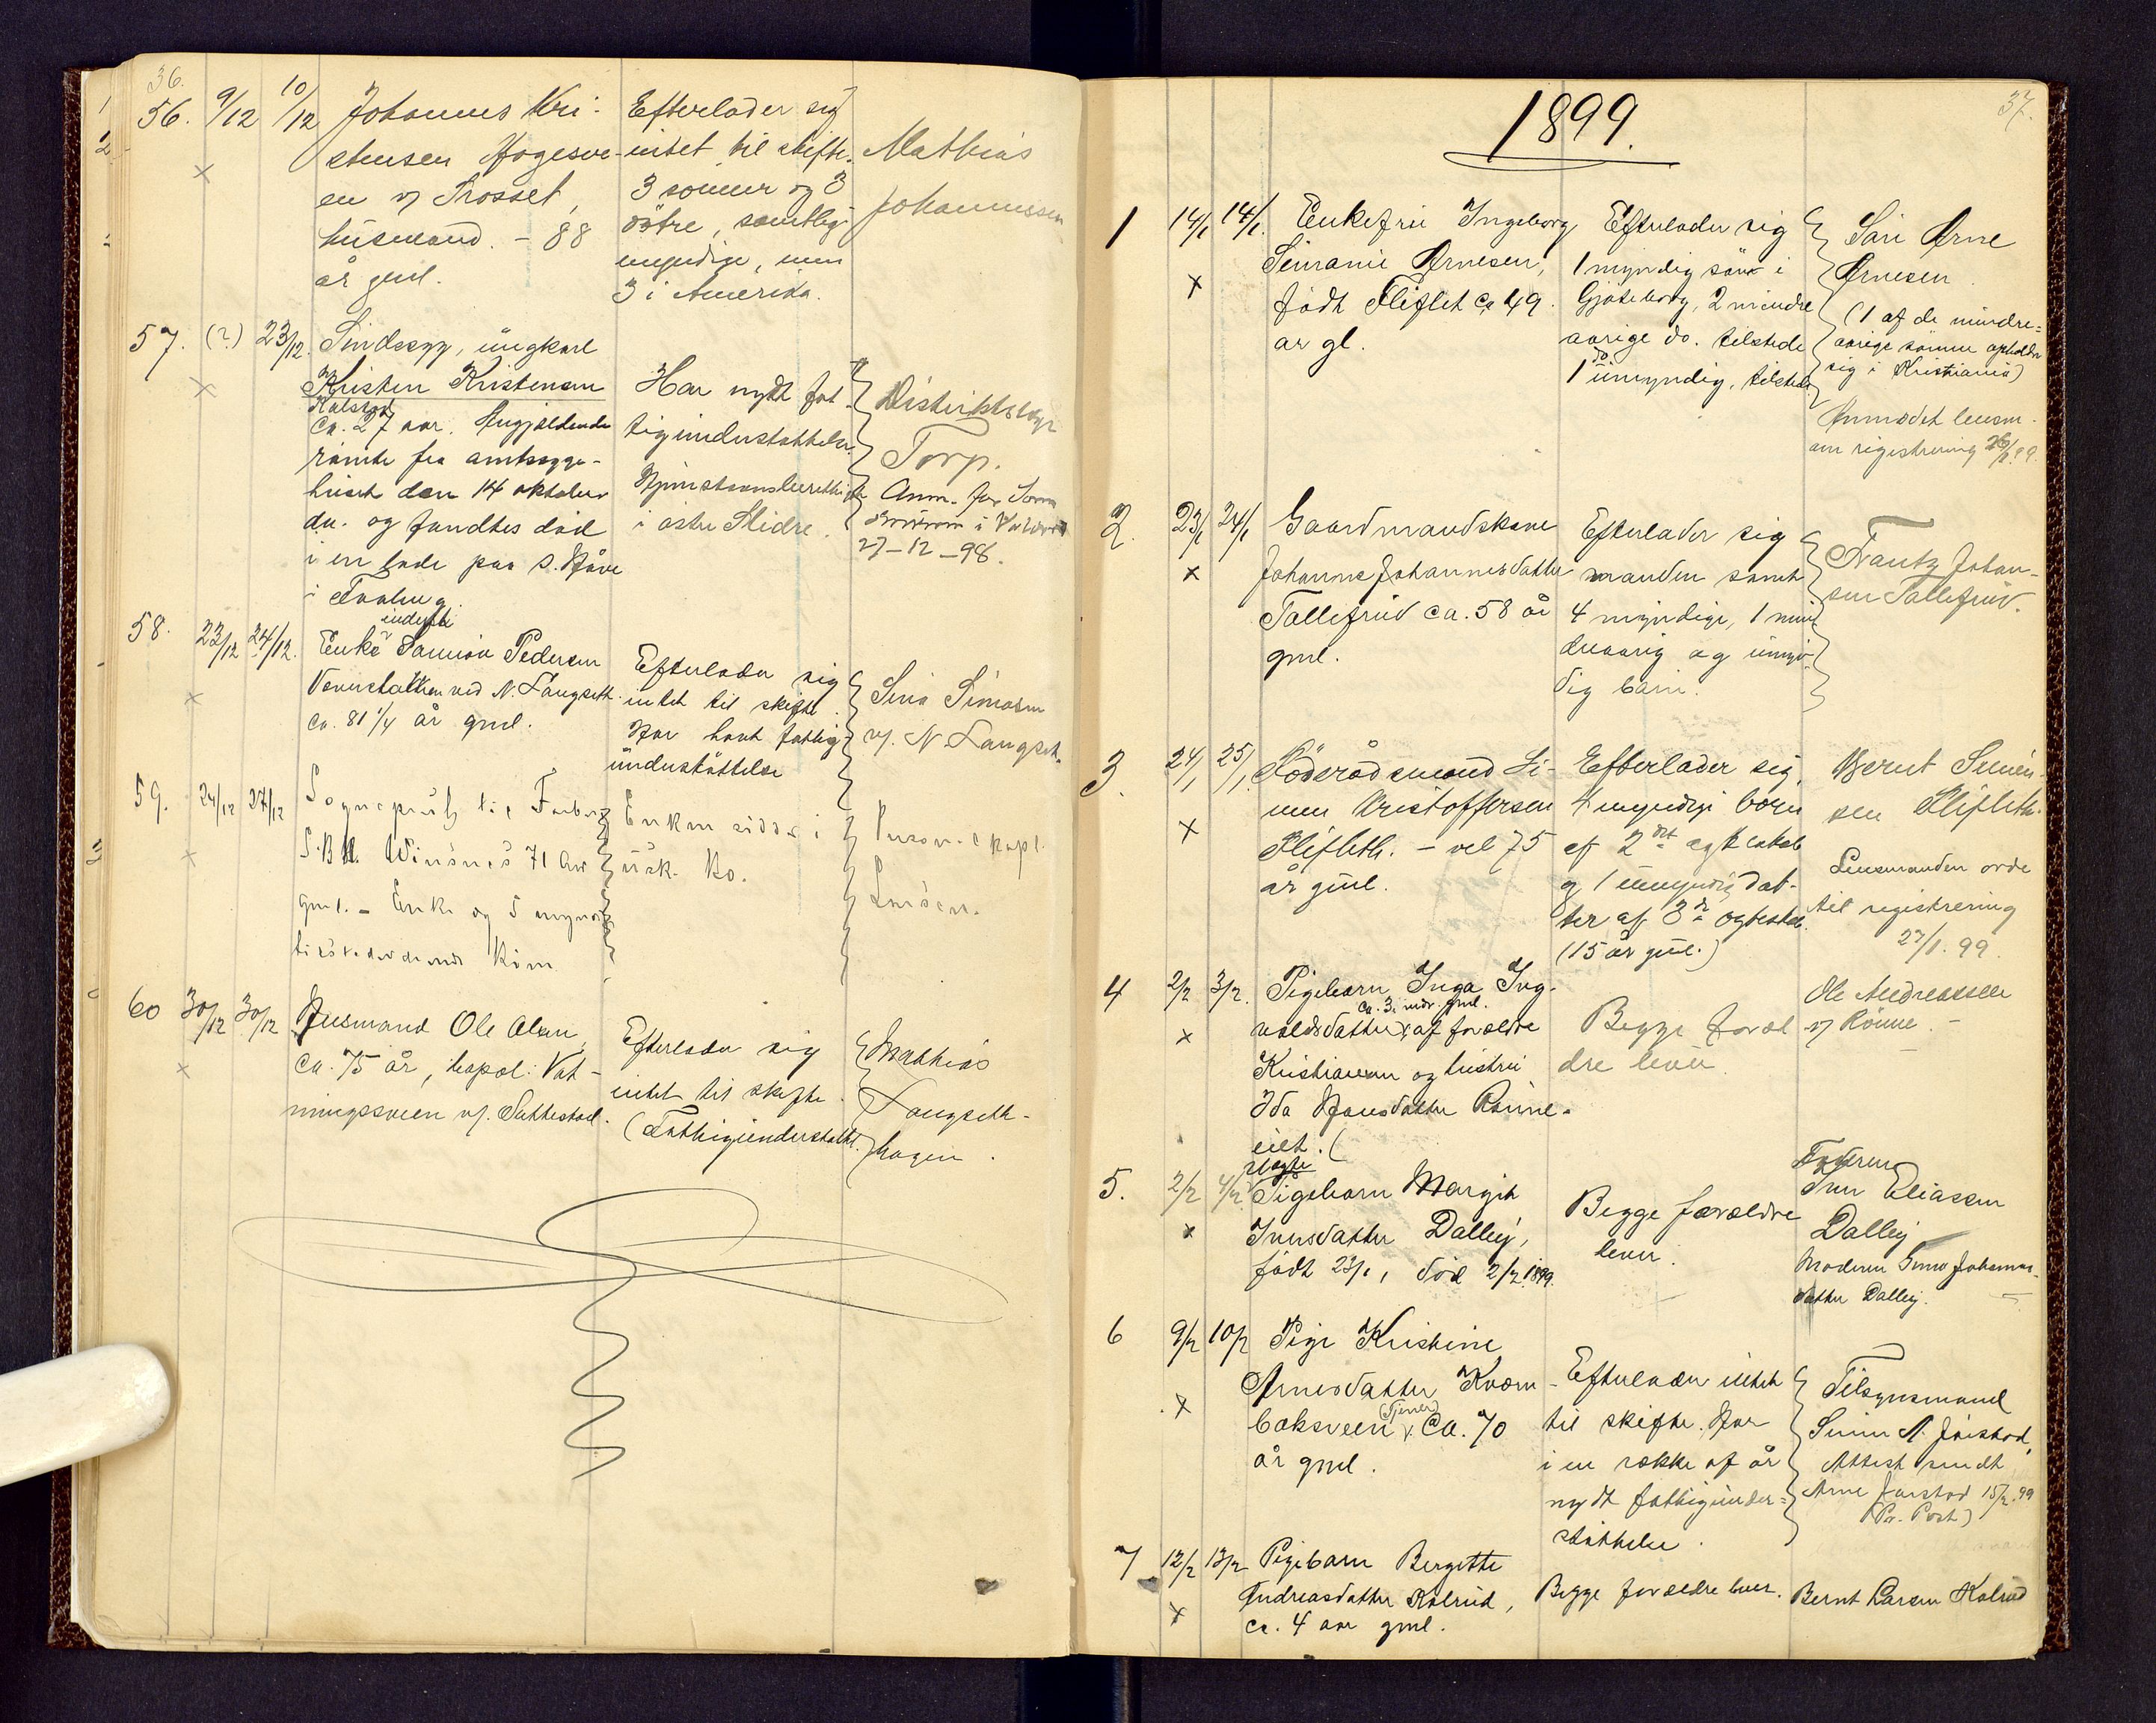 36.
56. 9/12 10/12 Johannes Kri-
stensen Hagesve-
en v/ Trosset,
husmand. - 88
år gml.
Efterlader sig
intet til skifte.
3 sønner og 3
døtre, samtlig
myndige, men
3 i Amerika.
Mathias
Johannessen
57. (?) 23/12. Sindssyg, ungkarl
Kristen Kristensen
Kalstad
ca. 27 aar. Angjældende
rømte fra amtssyge-
huset den 14 oktober
d.a. og fandtes død
i en lade paa S. Høve
i Faaberg.
Har nydt fat-
tigunderstøttelse.
Hjemstavnsberettiget
i østre Slidre.
Distriktslæge
Torp.
Anm. for Soren-
skriveren i Valdres
27-12-98.
58. 23/12 24/12. Enke indersti
Pedersen
ved N. Langseth
ca. 81 1/4 år gml.
Efterlader sig
intet til skifte.
Har havt fattig-
understøttelse
Simensen
v/. N. Langset.
59. 24/12 27/12 Sogneprest til Faaberg
Winsnes 71 Aar
gml. - Enke og 5 mynd.
tilstedeværende Børn
Enken sidder i
usk. Bo.
Person. Kapl.
60 30/12 30/12 Husmand Ole Olsen,
ca. 75 år, bopæl: Vat-
ningssveen v/. Suttestad.
Efterlader sig
intet til skifte.
(Fattigunderstøttet.
Mathias
Langseth-
hagen.
37.
1899.
1 14/1 14/1. Enkefru Ingeborg
Simanie Arnesen,
født Fliflet ca 49
år gl.
Efterlader sig
1 myndig søn i
Gjøteborg, 2 mindre
aarige do. tilstede
1 do umyndig, tilstede
Arne
Arnesen.
(1 af de mindre-
aarige sønner opholder
sig i Kristiania)
Anmodet lensm.
om registrering
2. 23/1 24/1 Gaardmandskone
Johanne Johannesdatter
Tollefrud ca. 58 år
gml.
Efterlader sig
manden samt
4 myndige, 1 min-
dreaarig og umyn-
dig barn.
Frantz Johan-
sen Tollefrud.
3. 24/1 25/1. Föderådsmand Si-
men Kristoffersen
Flifleth. - vel 75
år gml.
Efterlader sig,
4 myndige børn
af 2det ægteskab
og 1 umyndig dat-
ter af 3die ægteskab.
(15 år gml.)
Bernt Simen-
sen Flifleth.
Lensmanden ordre
til registrering
27/1. 99.
4 2/2 3/2. Pigebarn Inga Ing-
valdsdatter, ca. 3 mdr. gml. af forældre
Kristiansen og hustru
Ida Hansdatter Rønne-
eiet.
Begge foræl
dre lever.
Ole Andreassen
v/ Rønne. -
5. 2/2 4/2 uægte
Pigebarn Margit
Iversdatter Dalley,
født 23/1, død 2/2 1899.
Begge forældre
lever.
Faderen
Iver Eliassen
Dalley
Moderen Johannes-
datter Dalley.
6 9/2 10/2 Pige Kristine
Arnesdatter Kværn-
baksveen (Tjener) ca. 70
år gml.
Efterlader intet
til skifte. Har
i en række af år
nydt fattigunder-
støttelse.
Tilsynsmand
Simen A. Jørstad,
Attest sendt
Arne Jørstad 15/2.99
(Pr. Post)
7 12/2 13/2 Pigebarn Bergitte
Andreasdatter Kolrud,
ca. 4 aar gml.
Begge forældre lever.
Bernt Larsen Kolrud